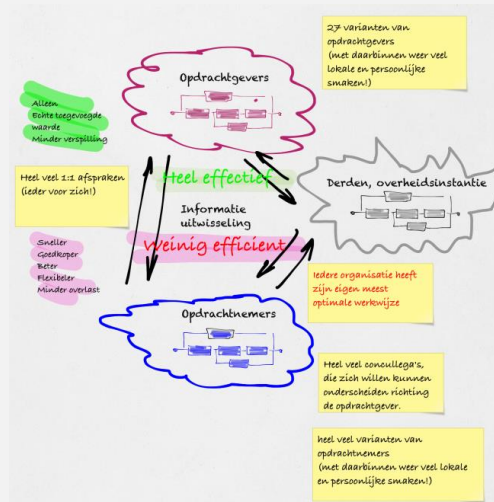 27 varianten van
opdrachtgevers
(met daarbinnen weer veel
lokale en persoonlijke
smaken!)
Opdrachtgevers
Alleen
Echte toegevoegde
waarde
Minder verspilling
Heel veel 1:1 afspraken
(ieder voor zich!)
Heel effectief
Derden, overheidsinstantie
Informatie
uitwisseling
Weinig efficient
Sneller
Goedkoper
Beter
Flexibeler
Minder overlast
Iedere organisatie heeft
zijn eigen meest
optimale werkwijze
Opdrachtnemers
Heel veel concullega's,
die zich willen kunnen
onderscheiden richting
de opdrachtgever.
heel veel varianten van
opdrachtnemers
(met daarbinnen weer veel lokale
en persoonlijke smaken!)